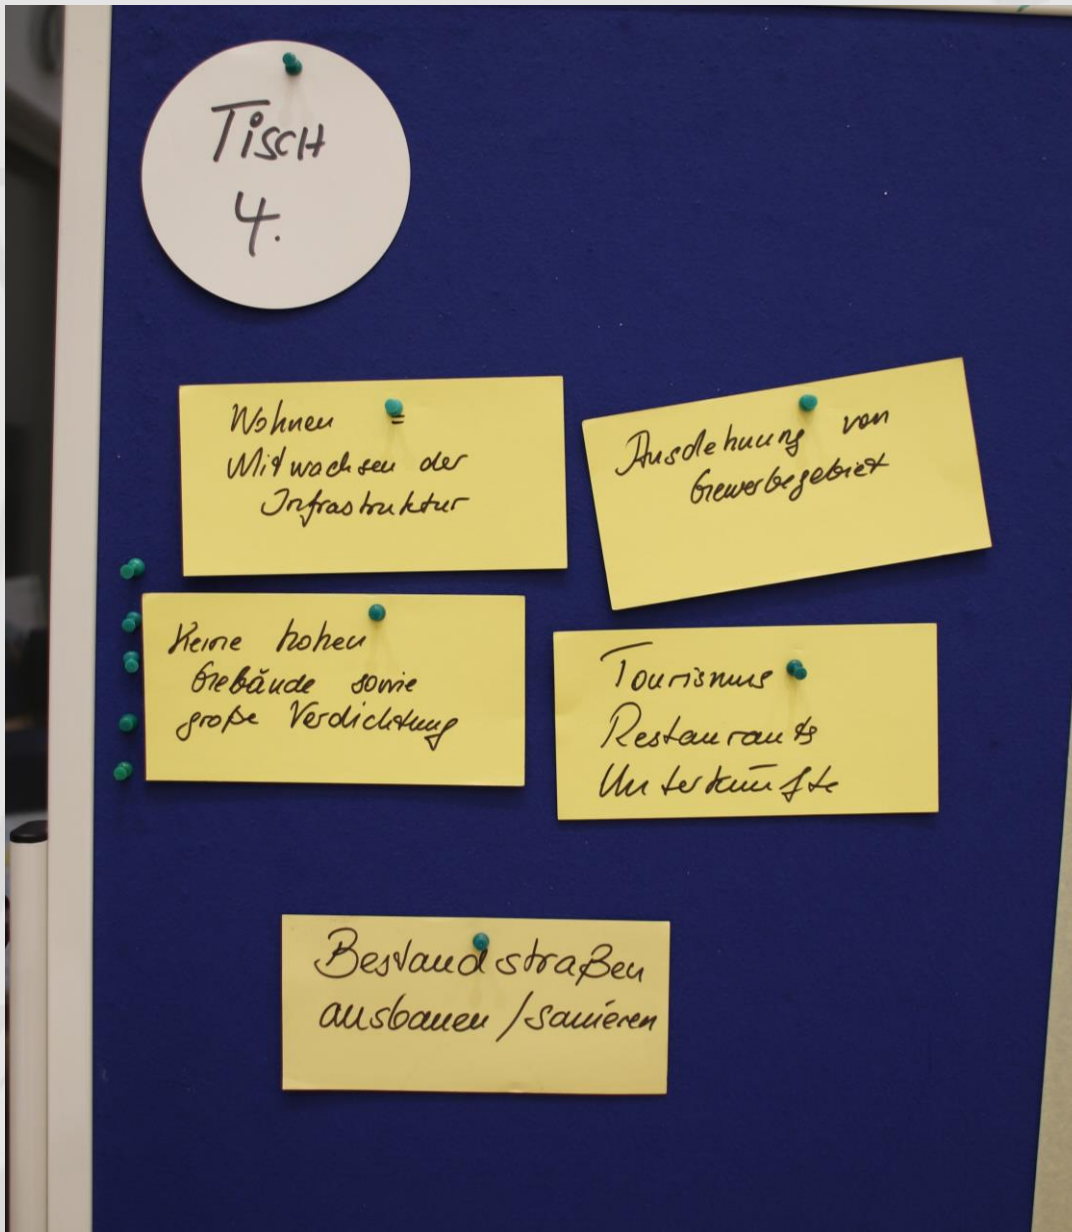 Tisch
4.
Wohnen =
Mitwachsen der
Infrastruktur
Ausdehnung von
Gewerbegebiet
Keine hohen
Gebäude sowie
große Verdichtung
Tourismus
Restaurants
Unterkünfte
Bestandstraßen
ausbauen / sanieren